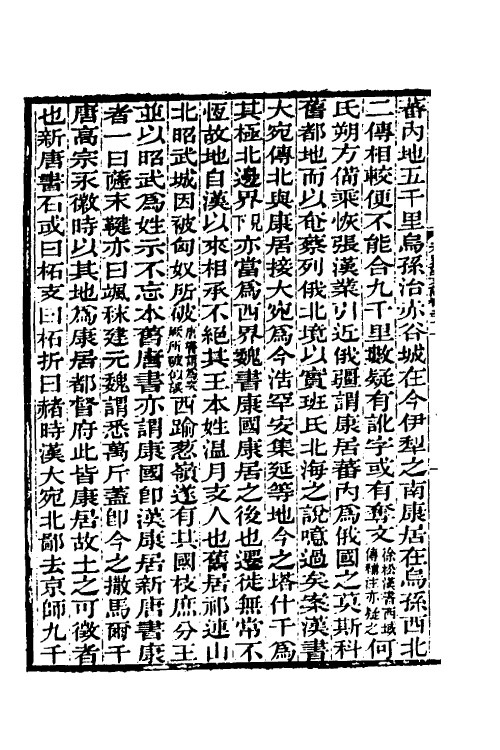 蕃內地五千里烏孫治赤谷城在今伊犁之南康居在烏孫西北
二傳相較便不能合九千里數疑有訛字或有奪文徐松漢書西域傳補注亦疑之何
氏朔方備乘恢張漢業引近俄疆謂康居蕃內為俄國之莫斯科
舊都地而以奄蔡列俄北境以實班氏北海之說噫過矣案漢書
大宛傳北與康居接大宛為今浩罕安集延等地今之塔什干為
其極北邊界亦當為西界魏書康國康居之後也遷徙無常不
恆故地自漢以來相承不絕其王本姓溫月支人也舊居祁連山
北昭武城因被匈奴所破西踰葱嶺遂有其國枝庶分王
並以昭武為姓示不忘本舊唐書亦謂康國即漢康居新唐書康
者一曰薩末鞬亦曰颯秣建元魏謂悉萬斤蓋即今之撒馬爾干
唐高宗永徽時以其地為康居都督府此皆康居故土之可徵者
也新唐書石或曰柘支曰柘折曰赭時漢大宛北鄙去京師九千